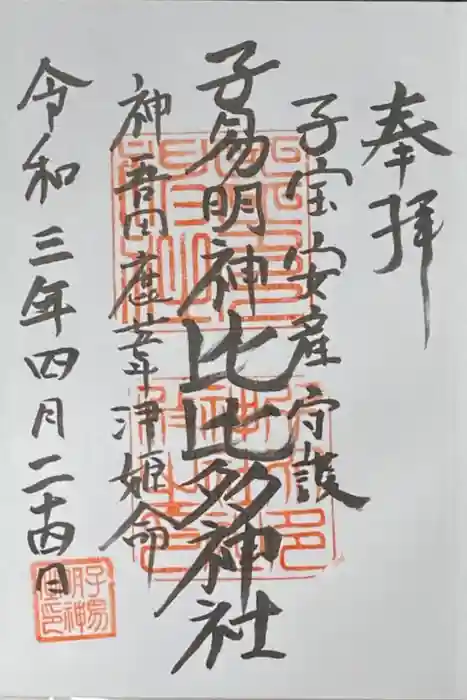 奉拝
子宝安産守護
子易明神 比比多神社
神吾田鹿葦津姫命
令和三年四月二十四日